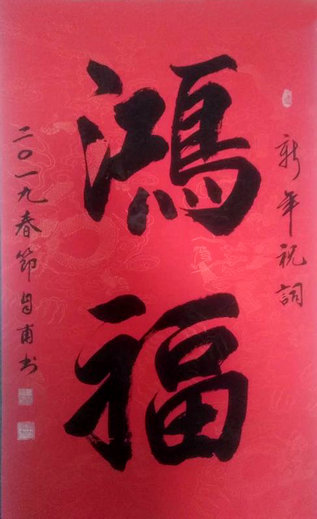 新年祝詞
鴻福
二〇一九春節自甫书